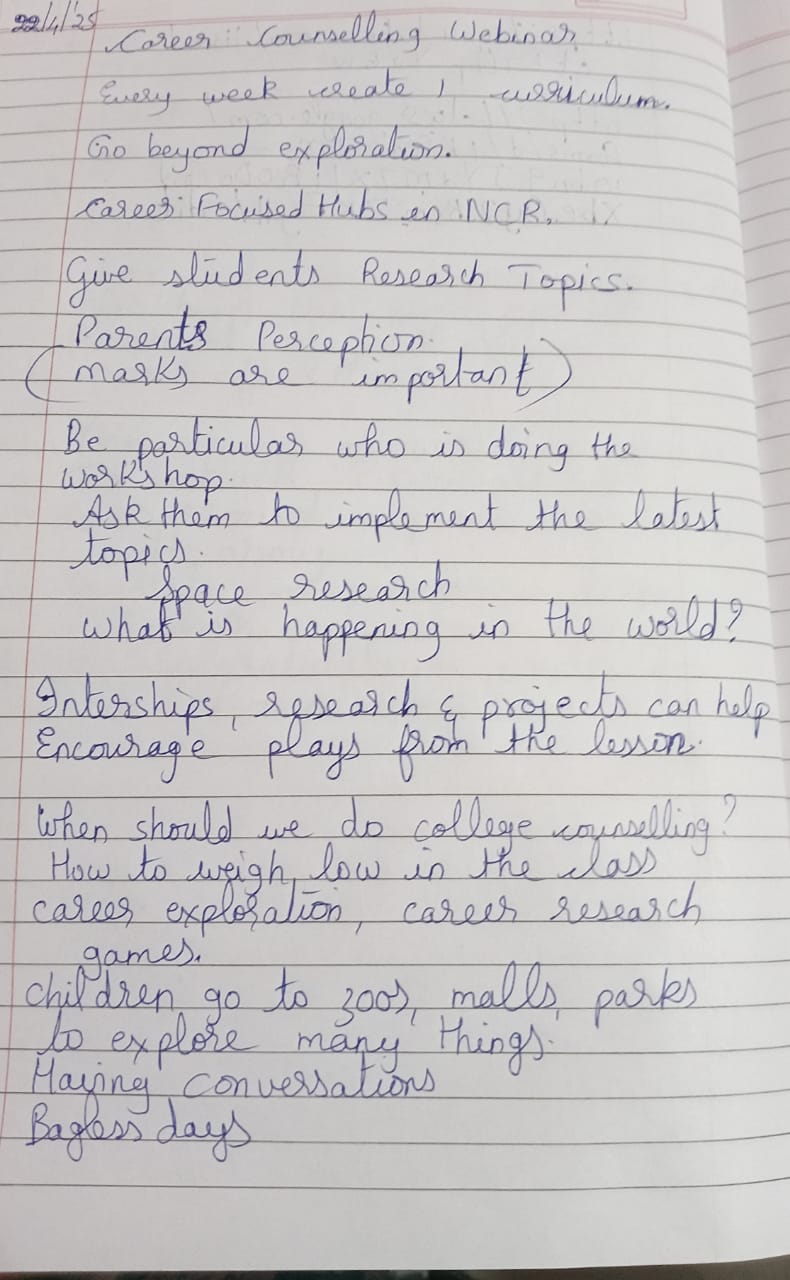 22/4/25
Career Counselling Webinar
Every week create 1 curriculum.
Go beyond exploration.
Career Focused Hubs in NCR.
Give students Research Topics.
Parents Perception.
(marks are important)
Be particular who is doing the
workshop.
Ask them to implement the latest
topics.
Space research
What is happening in the world?
Interships, research & projects can help
Encourage plays from the lesson.
When should we do college counselling?
How to weigh, low in the class
career exploration, career research
games.
Children go to zoos, malls, parks
to explore many things.
Having conversations
Bagless days